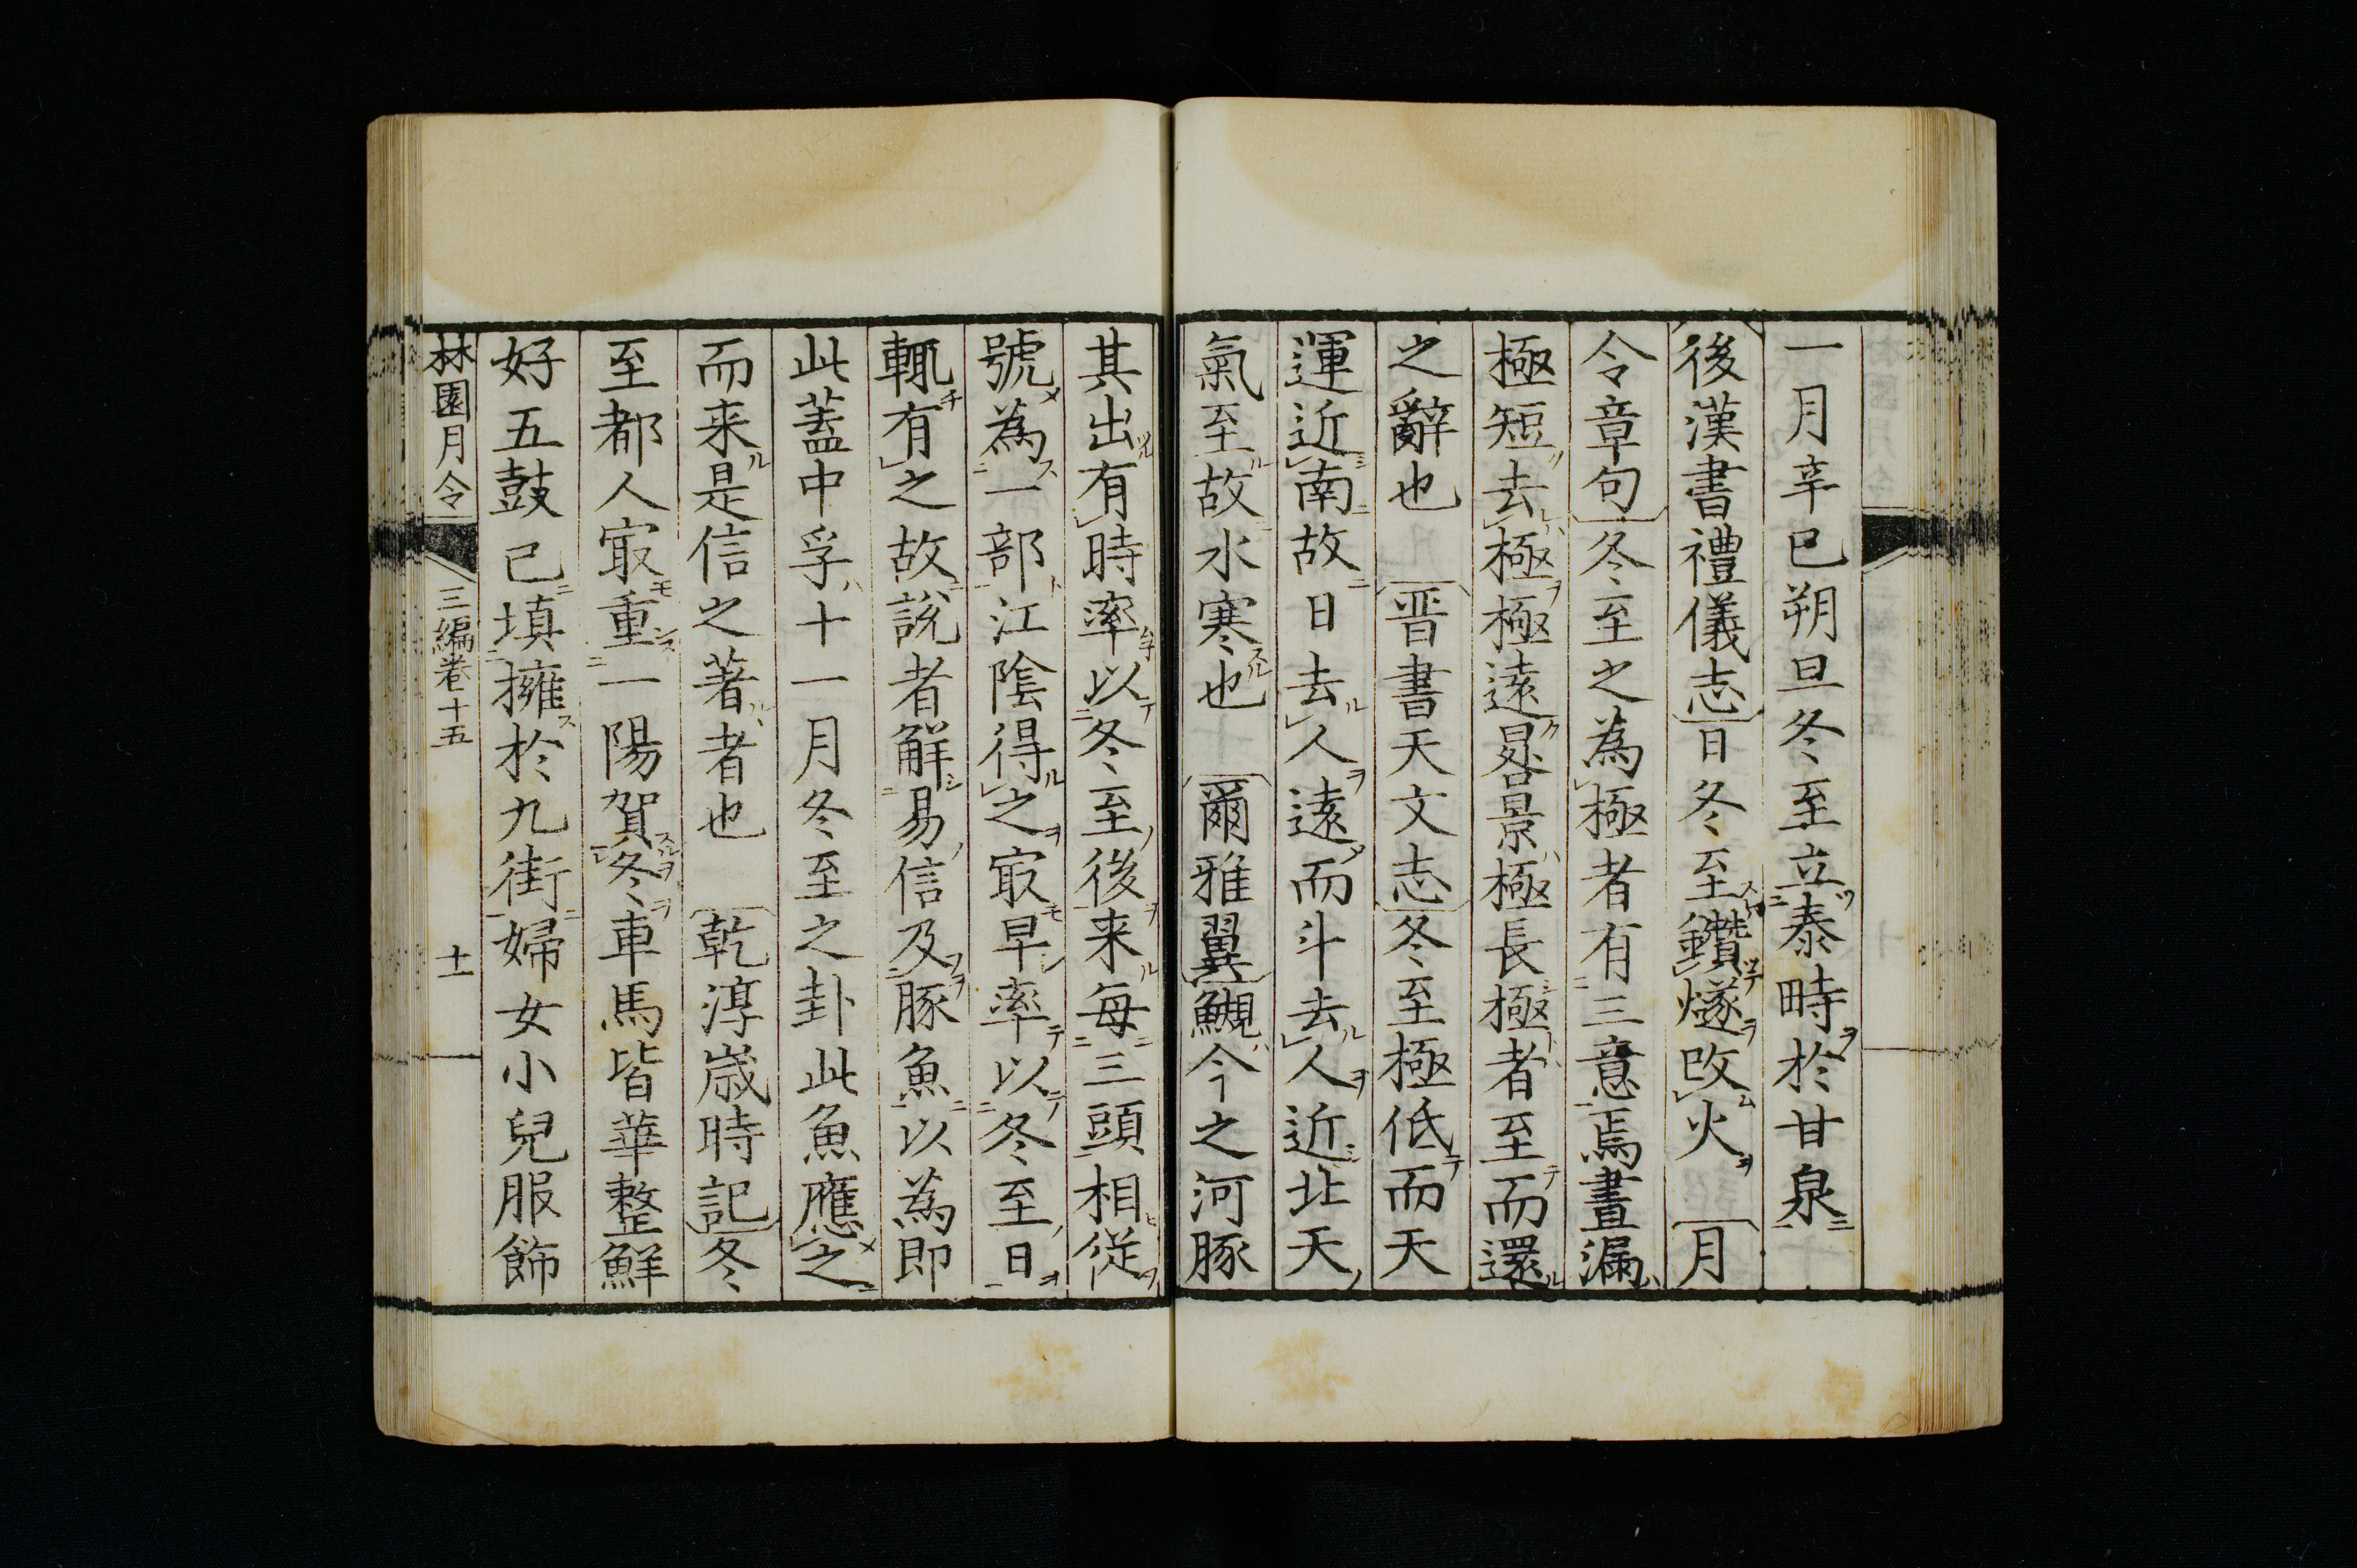 一月辛巳朔旦冬至立泰畤於甘泉
後漢書禮儀志日冬至鑽燧改火月
令章句冬至之為極者有三意焉晝漏
極短去極極遠晷景極長極者至而還
之辭也晋書天文志冬至極低而天
運近南故日去人遠而斗去人近北天
氣至故水寒也爾雅翼鯢今之河豚
其出有時率以冬至後来每三頭相従
號為一部江陰得之㝡早率以冬至日
輒有之故說者解易信及豚魚以為即
此蓋中孚十一月冬至之卦此魚應之
而来是信之著者也乾淳歳時記冬
至都人㝡重一陽賀冬車馬皆華整鮮
好五鼓已填擁於九街婦女小兒服飾
林園月令 三編巻十五 十一